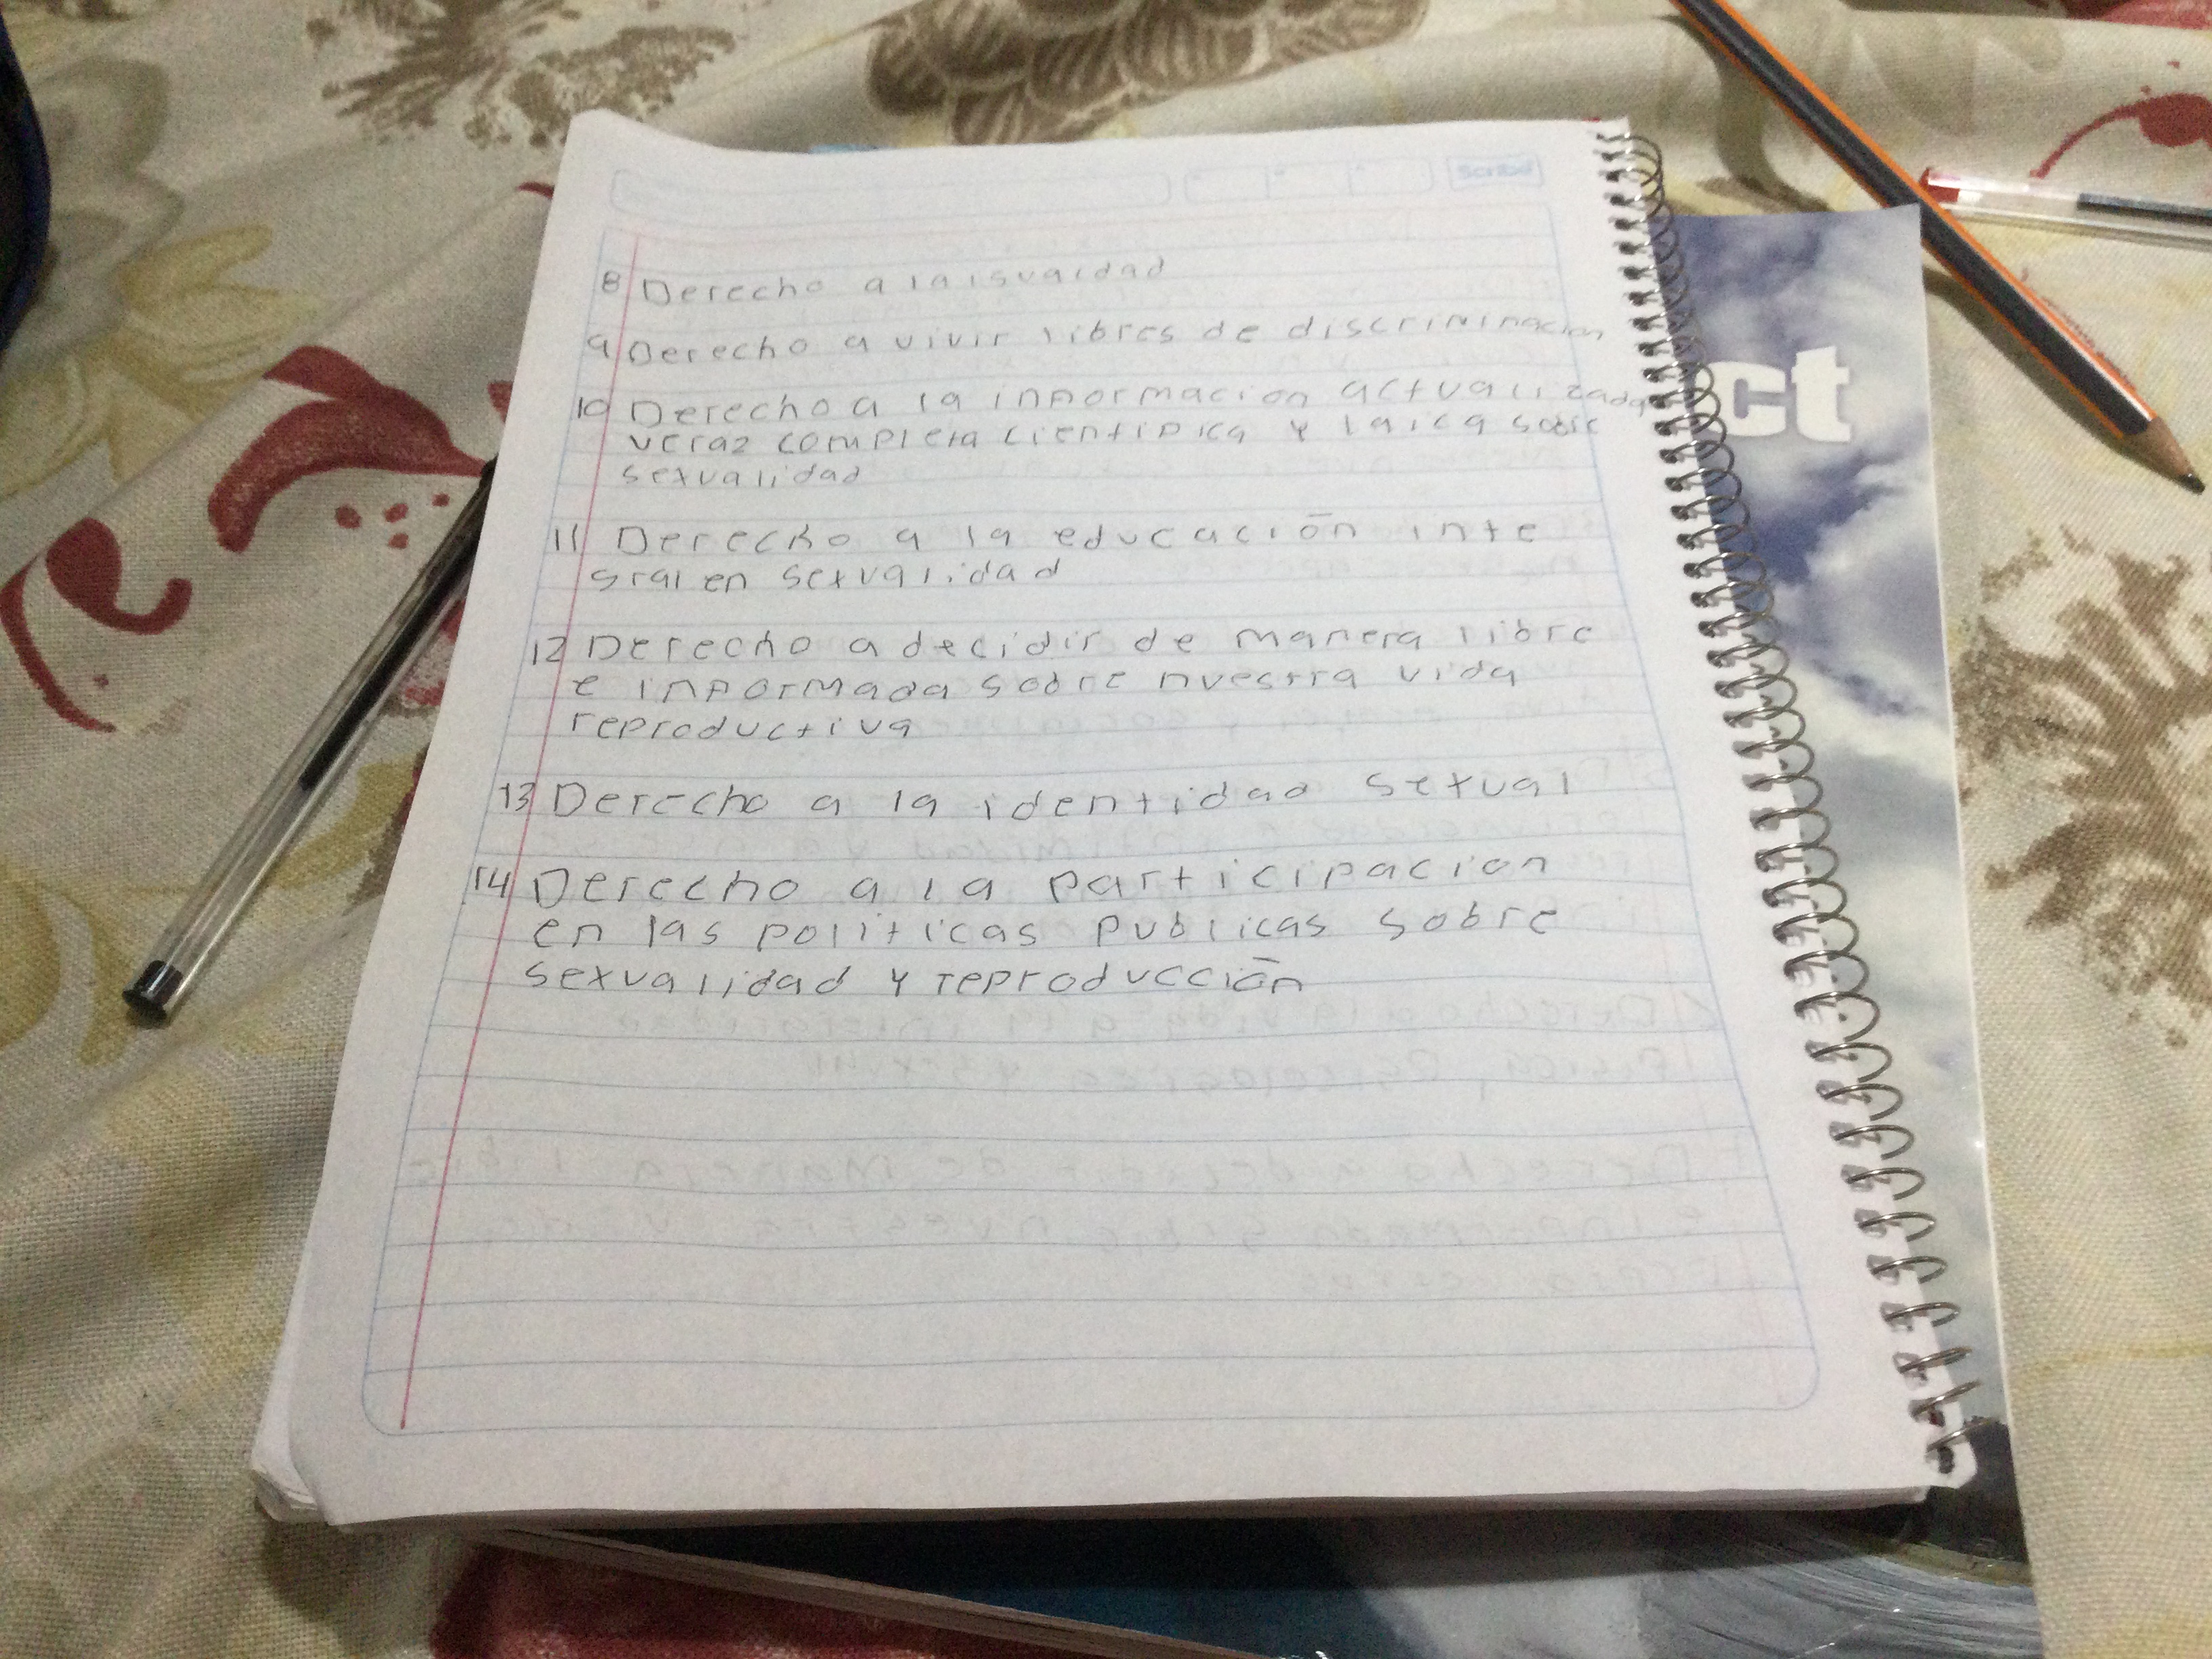 Scribe
8 Derecho a la igualdad
9 Derecho a vivir libres de discriminacion
10 Derecho a la informacion actualizada
veraz completa cientifica y laica sobre
sexualidad
11 Derecho a la educación inte
gral en sexualidad
12 Derecho a decidir de manera libre
e informada sobre nuestra vida
reproductiva
13 Derecho a la identidad sexual
14 Derecho a la participacion
en las politicas publicas sobre
sexualidad y reproducción
ct